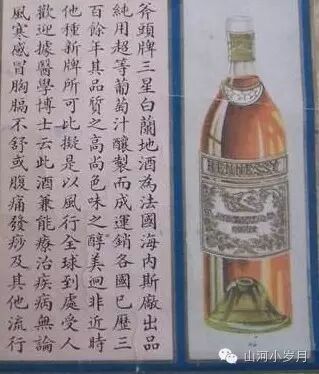 斧頭牌三星白蘭地酒為法國海內斯廠出品
純用超等葡萄汁釀製而成運銷各國已歷三
百餘年其品質之高尚色味之醇美迴非近時
他種新牌所可比擬是以風行全球到處受人
歡迎據醫學博士云此酒兼能療治疾病無論
風寒感冒胸膈不舒或腹痛發痧及其他流行
HENNESSY
山河小岁月